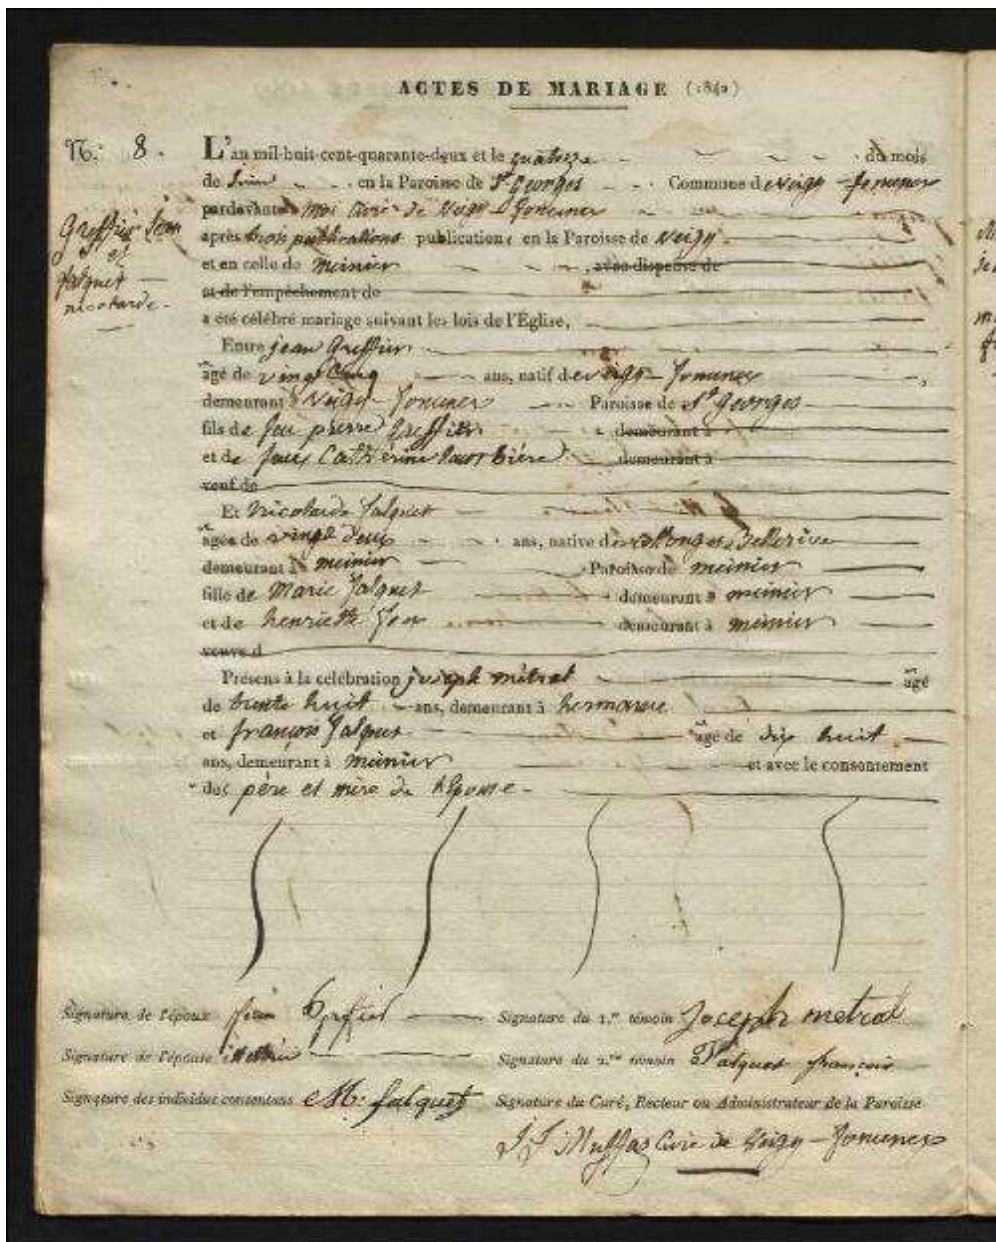 ACTES DE MARIAGE (1842)
N.º 8.
Greffier Jean
et
falquet
nicolarde.
L'an mil-huit-cent-quarante-deux et le quatorze du mois
de Juin en la Paroisse de St Georges Commune de Veigy-foncenex
pardevant moi Curé de Veigy-foncenex
après trois publications publications en la Paroisse de Veigy
et en celle de meinier, avec dispense de
et de l'empêchement de
a été célébré mariage suivant les lois de l'Église,
Entre jean Greffier
âgé de vingt cinq ans, natif de veigy-foncenex
demeurant à Veigy-foncenex Paroisse de St Georges
fils de feu pierre Greffier demeurant à
et de feue Cathérine demeurant à
veuf de
Et Nicolarde falquet
âgée de vingt deux ans, native de Collonges Bellerive
demeurant à meinier Paroisse de meinier
fille de Marie falquet demeurant à meinier
et de henriette demeurant à meinier
veuve d
Présens à la célébration joseph métral âgé
de trente huit ans, demeurant à hermance
et françois falquet âgé de dix huit
ans, demeurant à meinier et avec le consentement
des père et mère de l'Epouse.
Signature de l'époux jean Greffier Signature du 1.er témoin Joseph metral
Signature de l'épouse Signature du 2.me témoin Falquet françois
Signature des individus consentans M. falquet Signature du Curé, Recteur ou Administrateur de la Paroisse
Curé de Veigy-foncenex